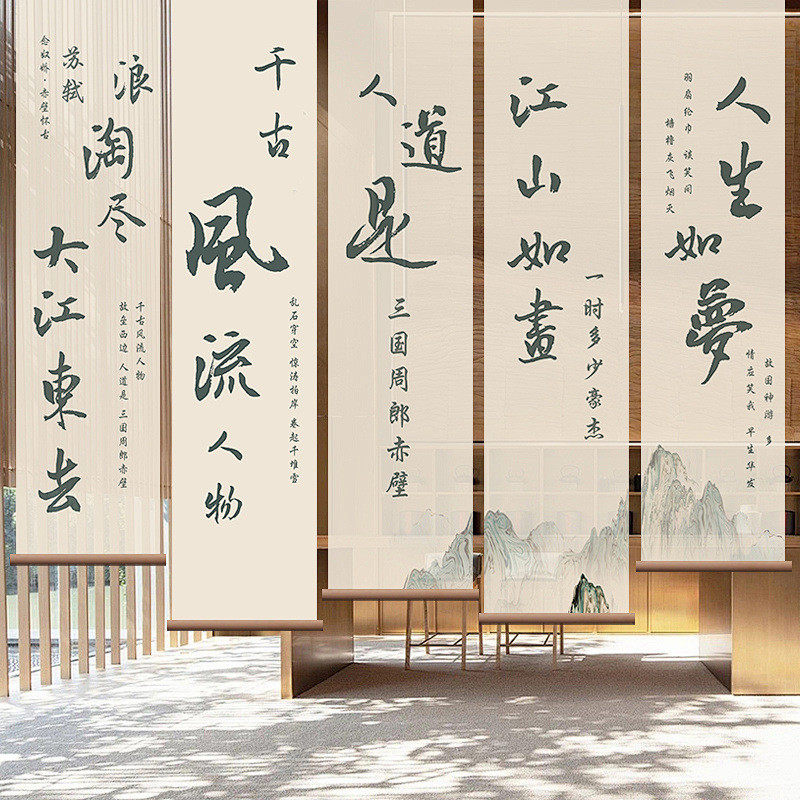 念奴娇·赤壁怀古
苏轼
大江東去
浪淘尽
千古风流人物
故垒西边 人道是 三国周郎赤壁
千古
風流人物
乱石穿空 惊涛拍岸 卷起千堆雪
人道是
三国周郎赤壁
江山如畫
一时多少豪杰
羽扇纶巾 谈笑间
樯橹灰飞烟灭
人生如夢
故国神游 多
情应笑我 早生华发